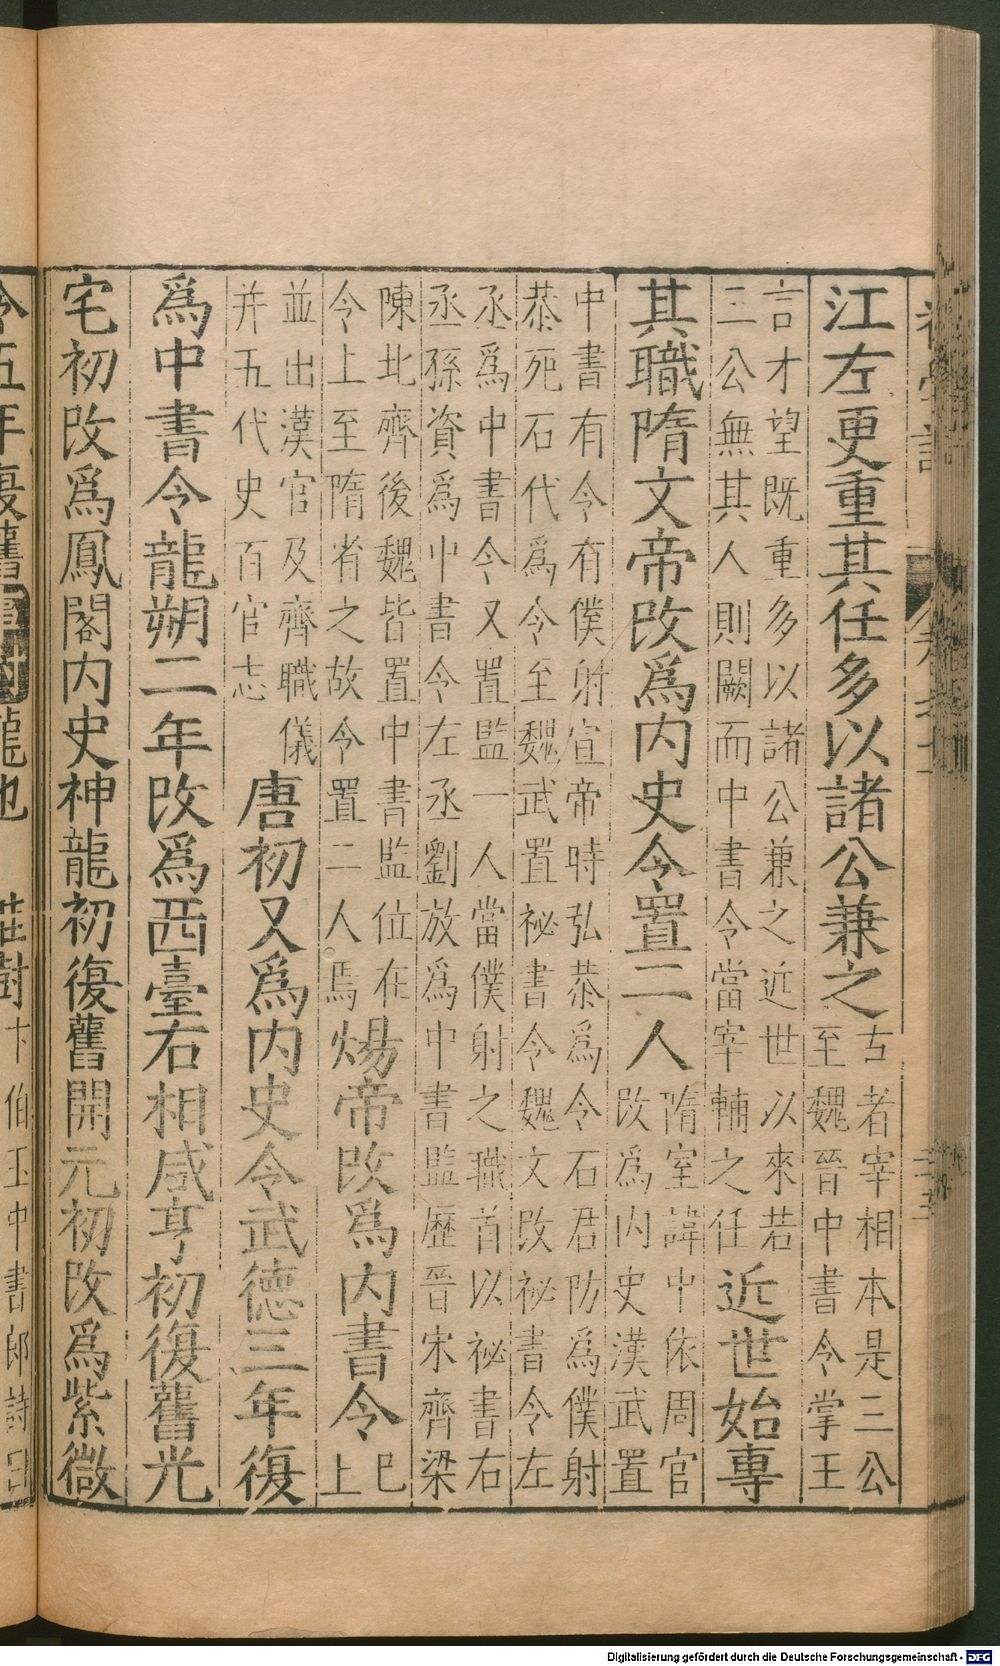 江左更重其任多以諸公兼之古者宰相本是三公
至魏晉中書令掌王
言才望既重多以諸公兼之近世以來若
三公無其人則闕而中書令當宰輔之任近世始專
其職隋文帝改爲内史令置二人隋室諱中依周官
改爲内史漢武置
中書有令有僕射宣帝時弘恭爲令石君防爲僕射
恭死石代爲令至魏武置祕書令魏文改祕書令左
丞爲中書令又置監一人當僕射之職首以祕書右
丞孫資爲中書令左丞劉放爲中書監歷晉宋齊梁
陳北齊後魏皆置中書監位在
令上至隋省之故令置二人焉煬帝改爲内書令巳
上
並出漢官及齊職儀
并五代史百官志唐初又爲内史令武德三年復
爲中書令龍朔二年改爲西臺右相咸亨初復舊光
宅初改爲鳳閣内史神龍初復舊開元初改爲紫微
令五年復舊
龍也
樹卞伯玉中書郎詩曰
Digitalisierung gefördert durch die Deutsche Forschungsgemeinschaft - DFG